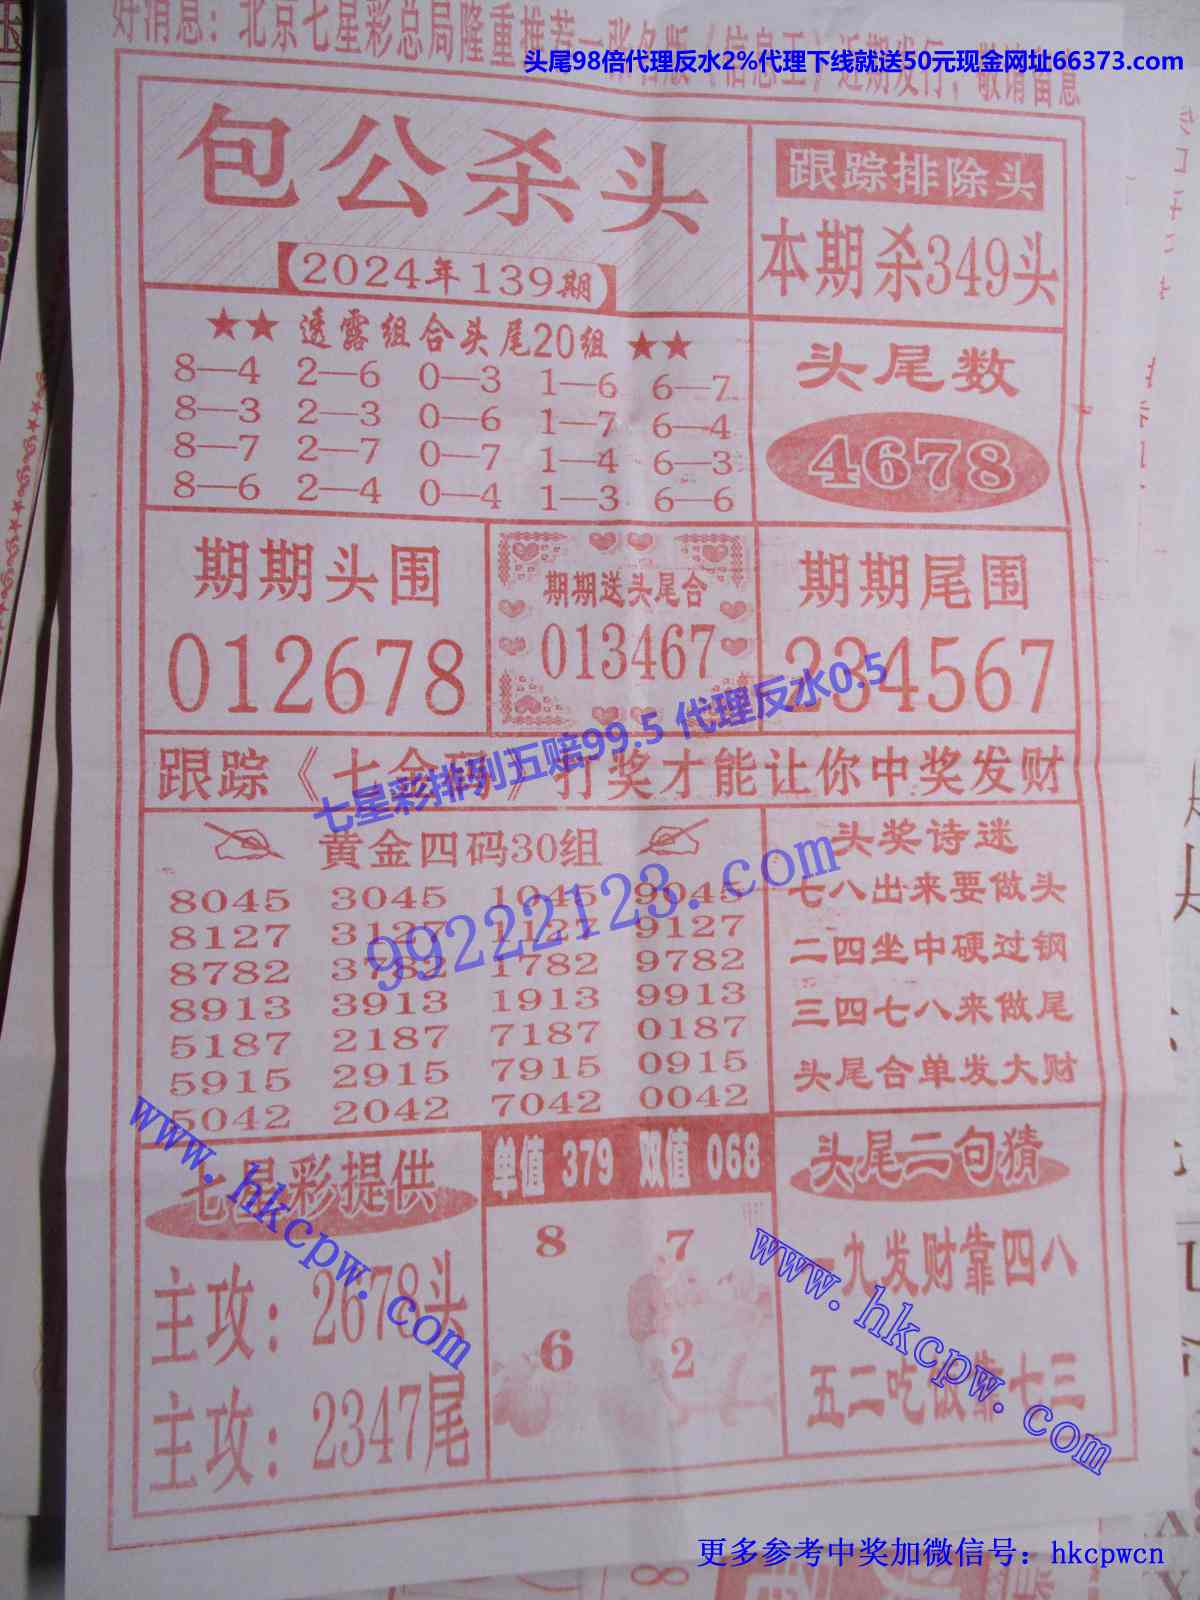 好消息：北京七星彩总局隆重推荐一张
头尾98倍代理反水2%代理下线就送50元现金网址66373.com
包公杀头
【2024年139期】
跟踪排除头
本期杀349头
★★ 透露组合头尾20组 ★★
8—4 2—6 0—3 1—6 6—7
8—3 2—3 0—6 1—7 6—4
8—7 2—7 0—7 1—4 6—3
8—6 2—4 0—4 1—3 6—6
头尾数
4678
期期头围
012678
期期送头尾合
013467
期期尾围
234567
七星彩排列五赔99.5 代理反水0.5
跟踪《七合码》打奖才能让你中奖发财
黄金四码30组
8045 3045 1045 9045
8127 3127 1127 9127
8782 3782 1782 9782
8913 3913 1913 9913
5187 2187 7187 0187
5915 2915 7915 0915
5042 2042 7042 0042
99222123.com
头奖诗迷
七八出来要做头
二四坐中硬过钢
三四七八来做尾
头尾合单发大财
www.hkcpw.com
七星彩提供
主攻：2678头
主攻：2347尾
单值 379 双值 068
8 7
6 2
头尾二句猜
一九发财靠四八
五二吃饭靠七三
www.hkcpw.com
更多参考中奖加微信号：hkcpwcn